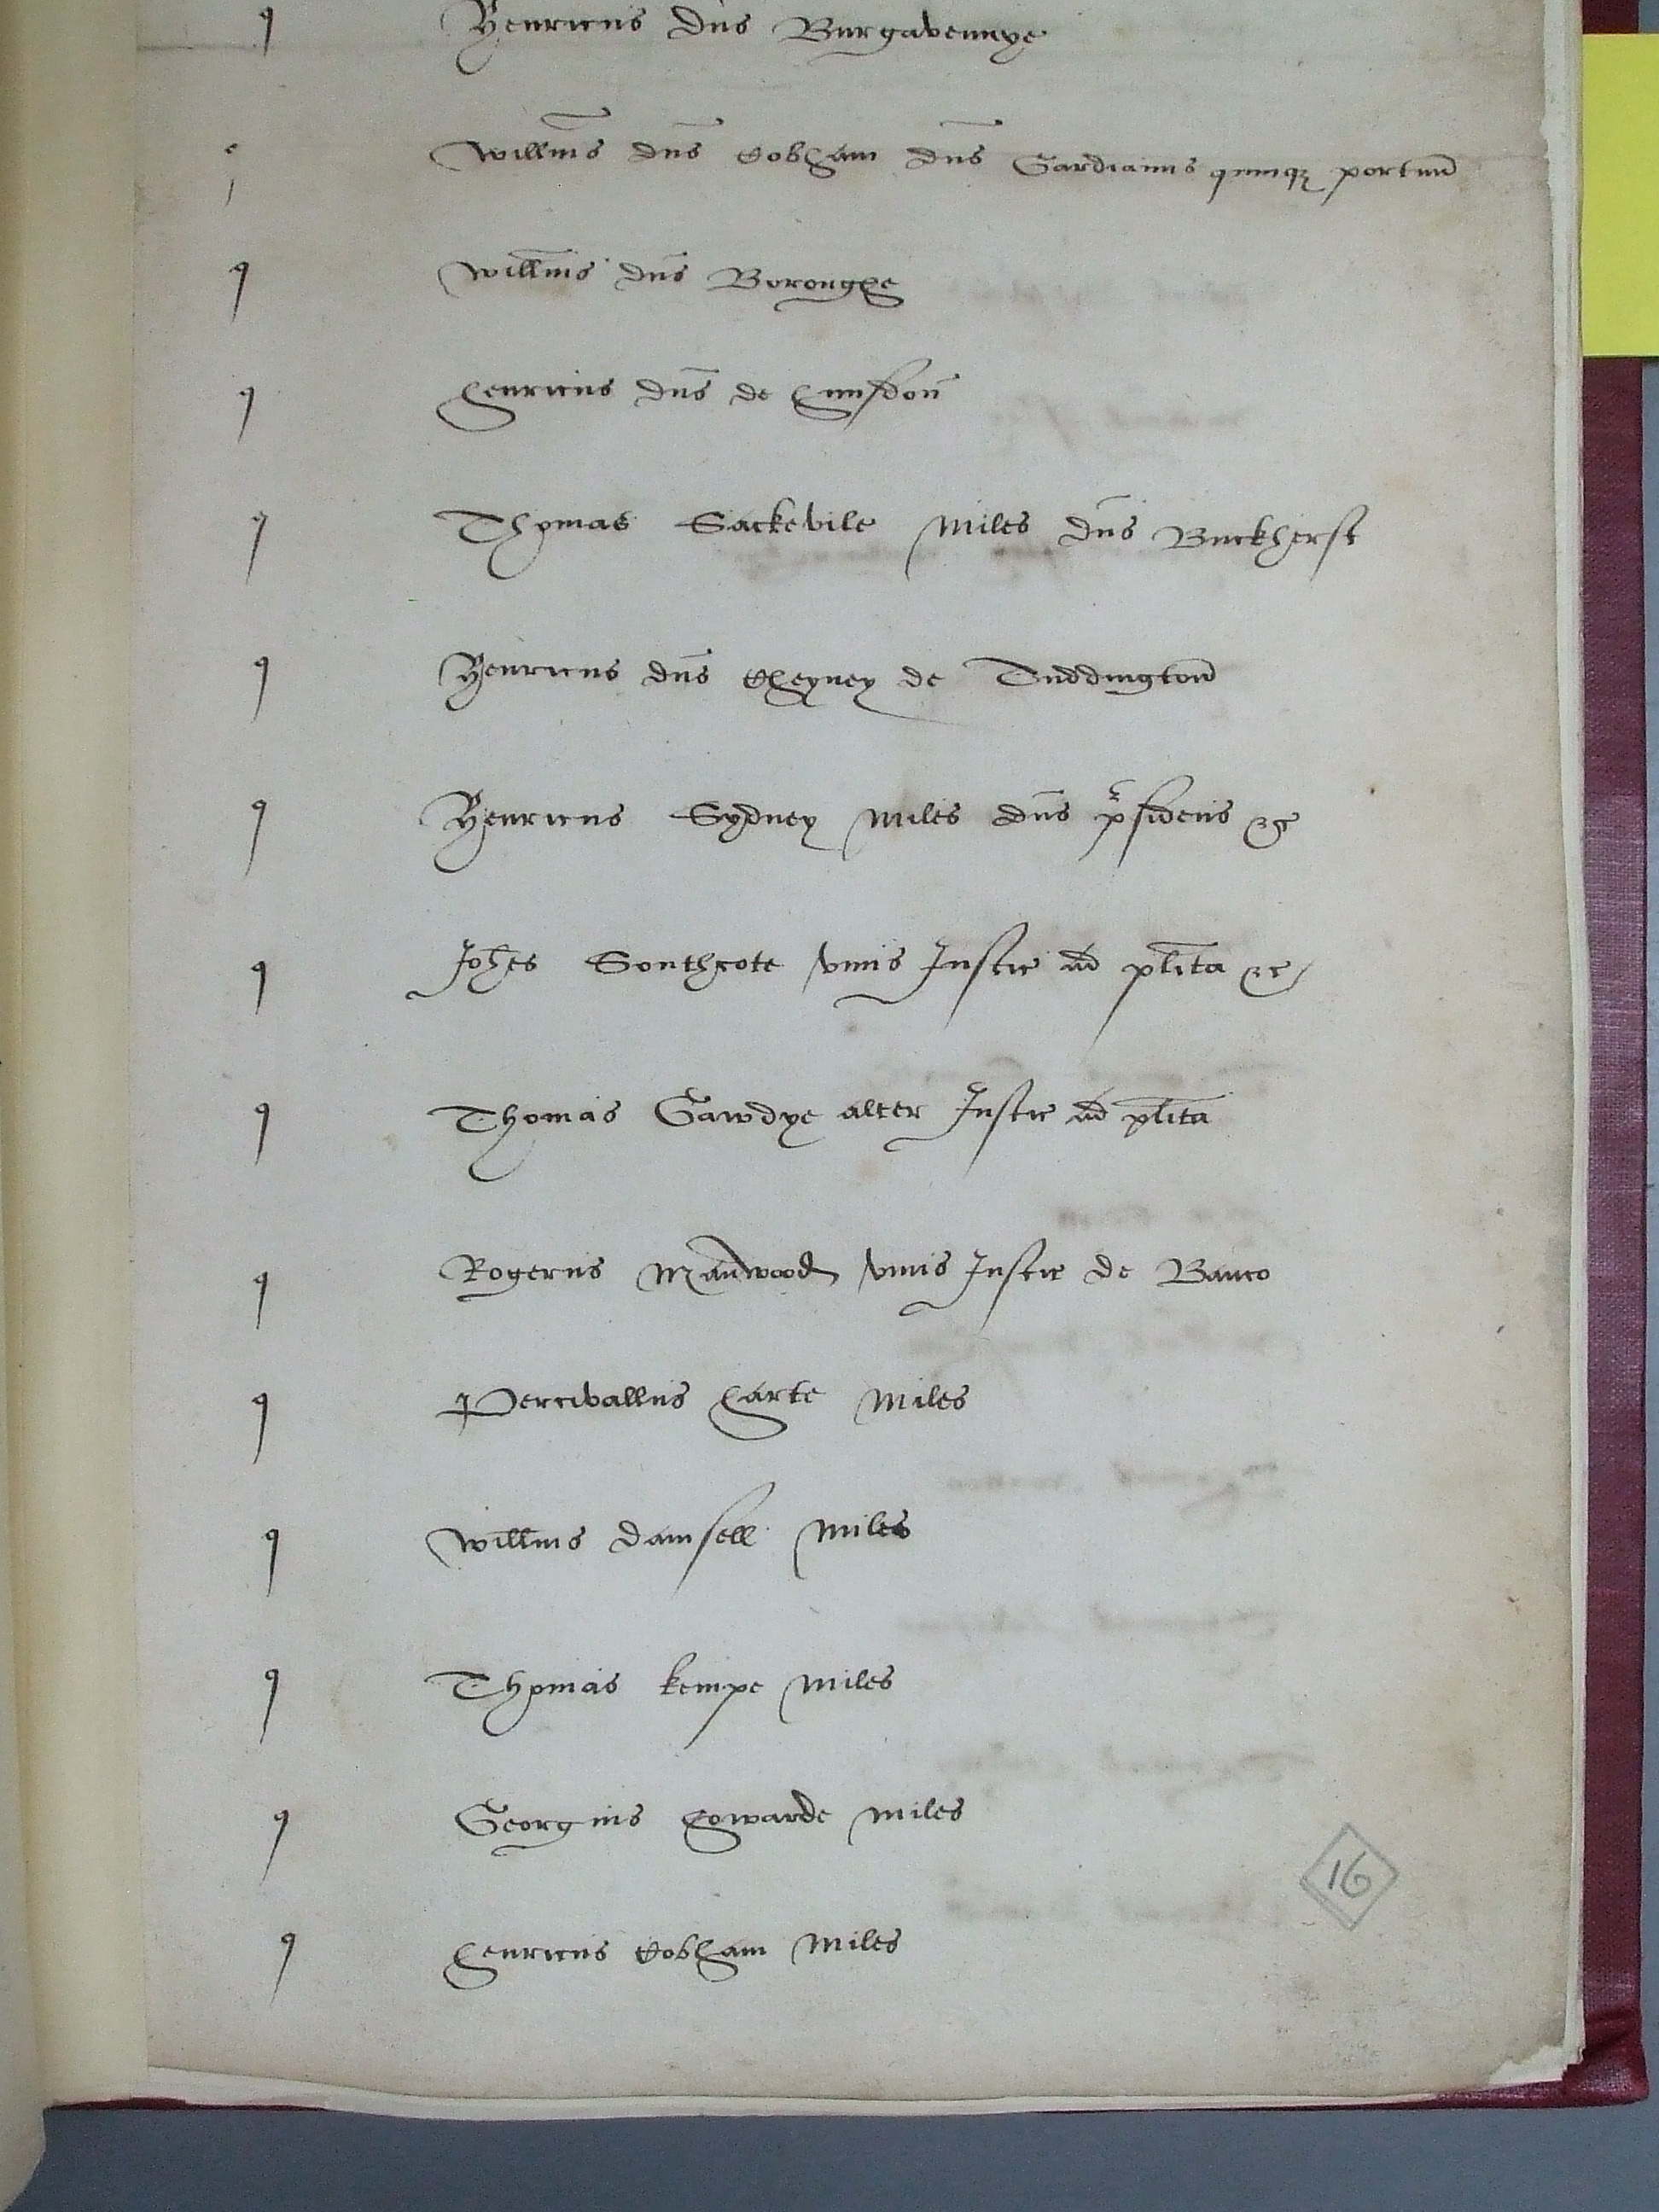 q Henricus dn̄s Burgavennye
Willm̄s dn̄s Cobham dn̄s Gardianus quinqꝫ portuū
q willm̄s dn̄s Boroughe
q henricus dn̄s de hunsdon̄
q Thomas Sackevile miles dn̄s Buckherst
q Henricus dn̄s Cheyney de Tuddington̄
q Henricus Sydney miles dn̄s p̄sidens &c
q Joh̄es Southcote vnus Justic ad pl̄ita &c
q Thomas Gawdye alter Justic ad pl̄ita
q Rogerus Manwood vnus Justic de Banco
q Percivallus harte miles
q willm̄s damsell miles
q Thomas kempe miles
q Georgius howarde miles
q henricus Cobham miles
16